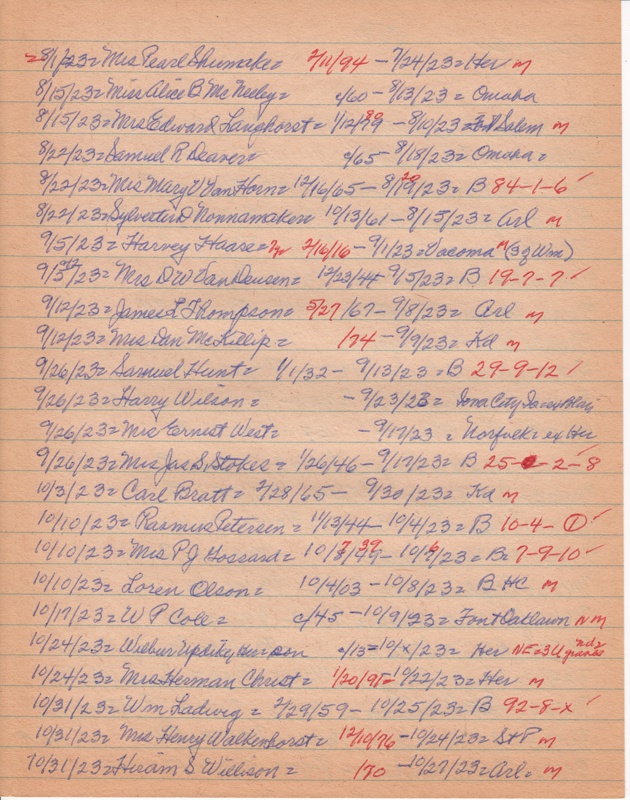 8/1/23= Mrs Pearl Shumake= 2/11/94 - 7/24/23= Her m
8/15/23= Miss Alice B McNelley= c/60 - 8/13/23= Omaha
8/15/23= Mrs Edward Langhorst= 1/12/ - 8/10/23= Salem m
8/22/23= Samuel R Deaver= c/65 8/18/23= Omaha=
8/22/23= Mrs Mary V VanHorn= 12/16/65 - 8/ /23= B 84-1-6
8/22/23= Sylvester D Nonnamaker 10/13/61 - 8/15/23= Arl m
9/5/23= Harvey Haase= 2/16/16 - 9/1/23= Vacoma m (3 of Wm)
/23= Mrs DW VanDeusen= 12/23/44 9/5/23= B 19-7-7
9/12/23= James L Thompson= 5/27/67 - 9/8/23= Arl m
9/12/23= Mrs Dan McKillip= /74 - 9/9/23= Kd m
9/26/23= Samuel Hunt= 1/1/32 - 9/13/23= B 29-9-12
9/26/23= Harry Wilson= - 9/23/23= Iona City
9/26/23= Mrs Ernest West= - 9/17/23 = Norfolk= ex Her
9/26/23= Mrs Jas S, Stokes= 1/26/46 - 9/17/23= B 25- - 2-8
10/3/23= Carl Bratt= 2/28/65 - 9/30/23= Kd m
10/10/23= Rasmus Petersen= 11/13/44 - 10/4/23= B 10-4- 1
10/10/23= Mrs P J Hossard= 10/ - 10/ /23= B= 7-9-10
10/10/23= Loren Olson= 10/4/03 - 10/8/23= B HC m
10/17/23= W P Cole= c/45 - 10/9/23= Font Oaklawn N m
10/24/23= Wilbur c/13= 10/x/23= Her NE=3U
10/24/23= Mrs Herman Christ= 1/20/95= 10/22/23= Her m
10/31/23= Wm Ladwig= 2/29/59 - 10/25/23= B 92-8-x
10/31/23= Mrs Henry Walkenhorst= 12/10/76 - 10/24/23= St P m
10/31/23= Hiram S Willison= /70 - 10/27/23= Arl= m